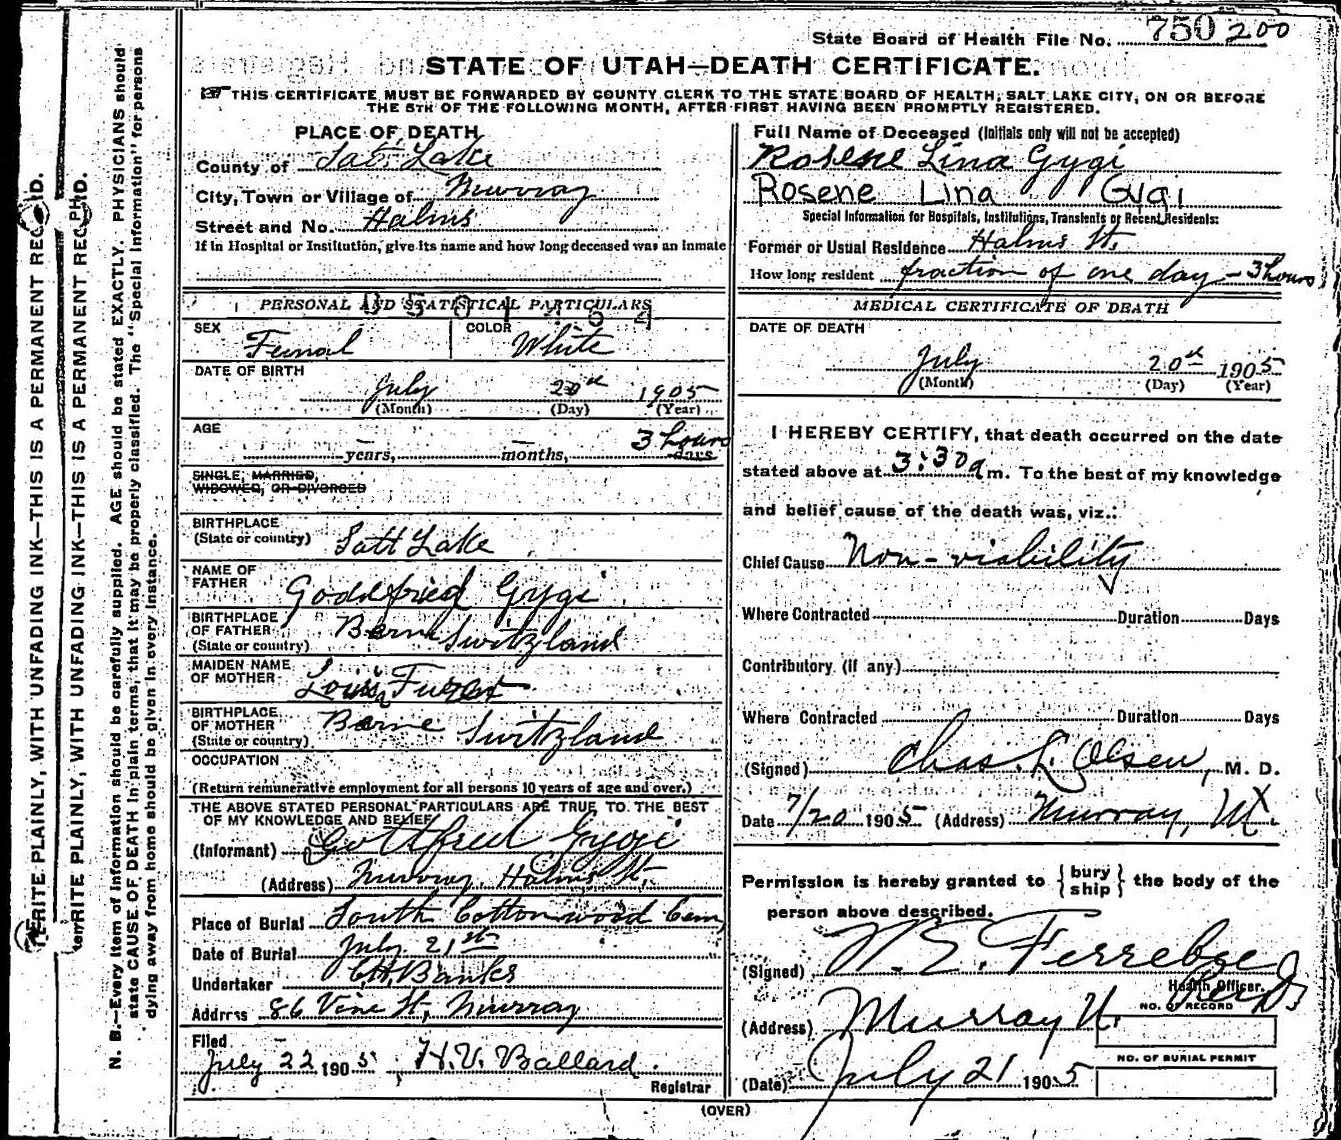 State Board of Health File No. 750 200
STATE OF UTAH—DEATH CERTIFICATE.
THIS CERTIFICATE MUST BE FORWARDED BY COUNTY CLERK TO THE STATE BOARD OF HEALTH, SALT LAKE CITY, ON OR BEFORE
THE 5TH OF THE FOLLOWING MONTH, AFTER FIRST HAVING BEEN PROMPTLY REGISTERED.
WRITE PLAINLY, WITH UNFADING INK—THIS IS A PERMANENT RECORD.
WRITE PLAINLY, WITH UNFADING INK—THIS IS A PERMANENT RECORD.
N. B.—Every item of information should be carefully supplied. AGE should be stated EXACTLY. PHYSICIANS should
state CAUSE OF DEATH in plain terms, that it may be properly classified. The "Special Information" for persons
dying away from home should be given in every instance.
PLACE OF DEATH
County of Salt Lake
City, Town or Village of Murray
Street and No. Halms
If in Hospital or Institution, give its name and how long deceased was an inmate
PERSONAL AND STATISTICAL PARTICULARS
SEX Femal
COLOR White
DATE OF BIRTH
July 20th 1905
(Month) (Day) (Year)
AGE
— years, — months, 3 hours days
SINGLE, MARRIED,
WIDOWED, OR DIVORCED
BIRTHPLACE
(State or country) Salt Lake
NAME OF
FATHER Goddfried Gygi
BIRTHPLACE
OF FATHER Berne Switzland
(State or country)
MAIDEN NAME
OF MOTHER
BIRTHPLACE
OF MOTHER Berne Switzland
(State or country)
OCCUPATION
(Return remunerative employment for all persons 10 years of age and over.)
THE ABOVE STATED PERSONAL PARTICULARS ARE TRUE TO THE BEST
OF MY KNOWLEDGE AND BELIEF
(Informant) Gottfried Gygi
(Address) Murray, Halms St.
Place of Burial South Cottonwood Cem
Date of Burial July 21st
Undertaker C.H. Banks
Address 86 Vine St, Murray
Filed
July 22 1905 H. V. Ballard
Registrar
Full Name of Deceased (Initials only will not be accepted)
Rosene Lina Gygi
Rosene Lina Gygi
Special Information for Hospitals, Institutions, Transients or Recent Residents:
Former or Usual Residence Halms St.
How long resident fraction of one day - 3 hours
MEDICAL CERTIFICATE OF DEATH
DATE OF DEATH
July 20th 1905
(Month) (Day) (Year)
I HEREBY CERTIFY, that death occurred on the date
stated above at 3:30 a m. To the best of my knowledge
and belief cause of the death was, viz.:
Chief Cause Non-viability
Where Contracted Duration Days
Contributory (if any)
Where Contracted Duration Days
(Signed) Chas. L. Olsen, M. D.
Date 7/20 1905 (Address) Murray, Ut.
Permission is hereby granted to {bury ship} the body of the
person above described.
(Signed) W. E. Ferrebee
Health Officer.
(Address) Murray U.
NO. OF RECORD
NO. OF BURIAL PERMIT
(Date) July 21 1905
(OVER)